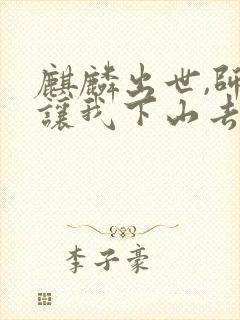 麒麟出世,師
讓我下山去
李子豪